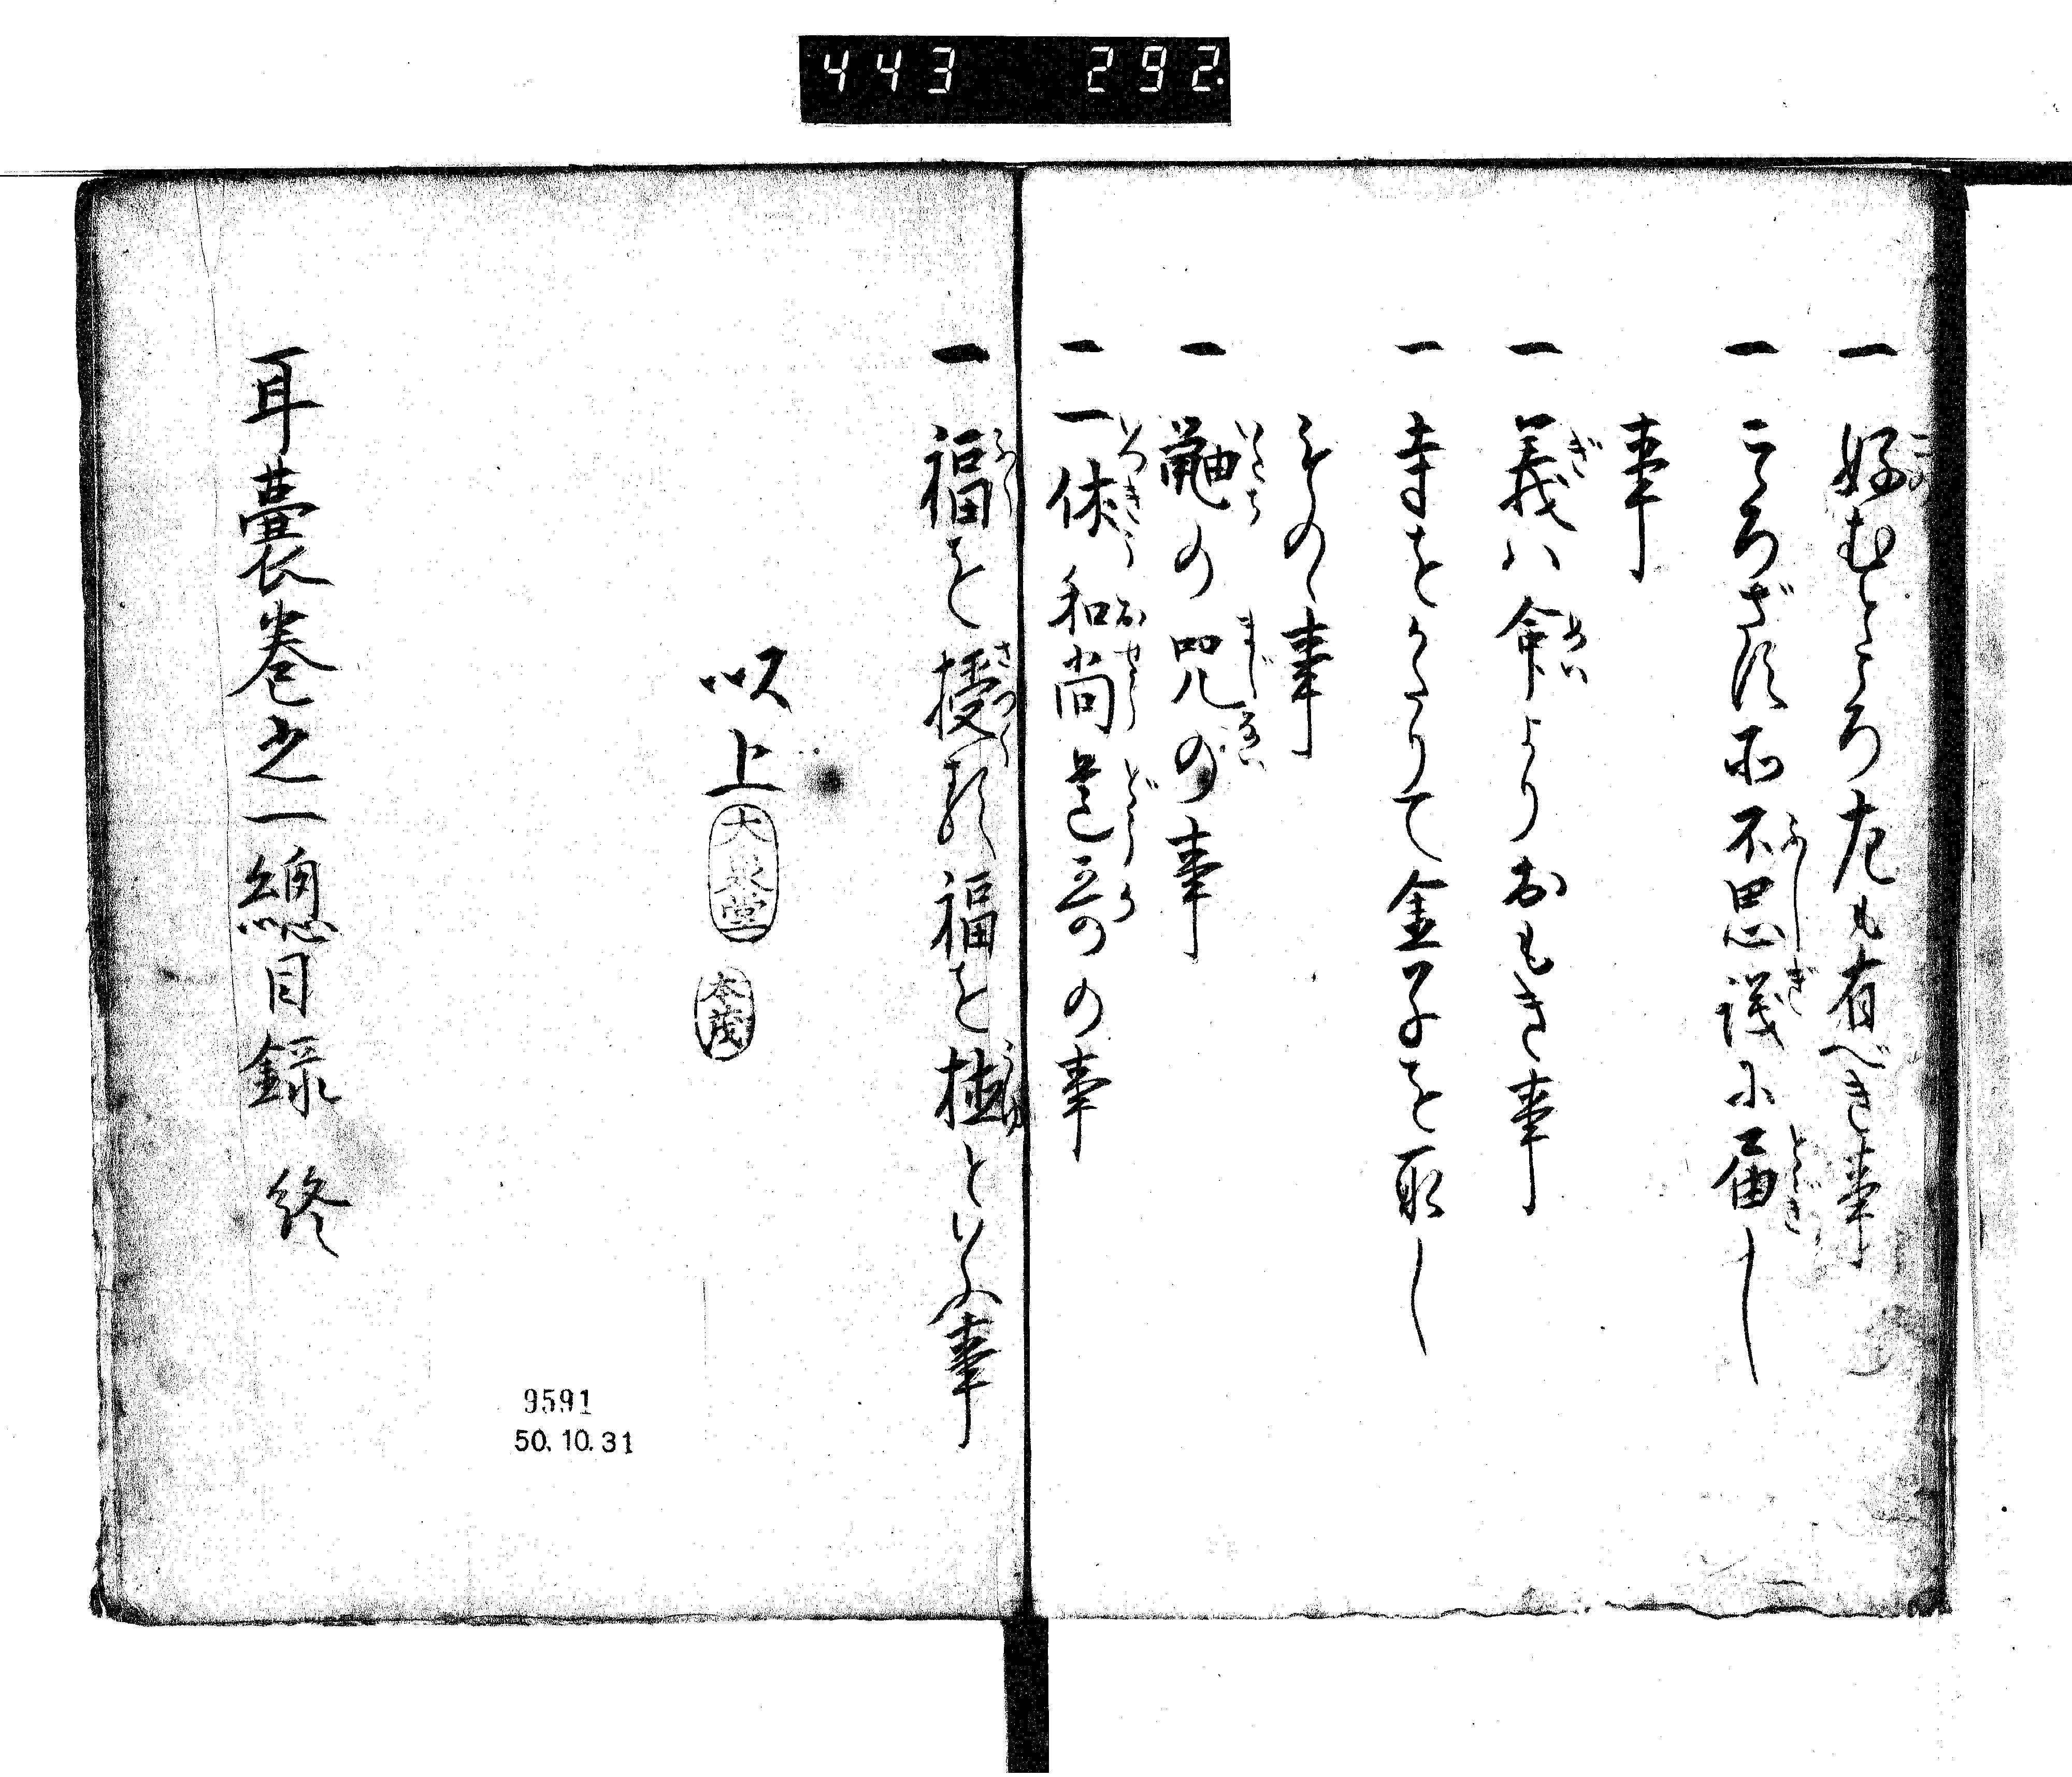 443 292.
一 好むところ左も有べき事
一 こゝろざす所不思議に届し
事
一 義ハ命よりおもき事
一 寺をかたりて金子を取し
ものゝ事
一 鼬の呪の事
一 一休和尚道哥の事
一 福を授る福を植といふ事
以上
大泉堂
本茂
9591
50.10.31
耳囊巻之一總目録 終